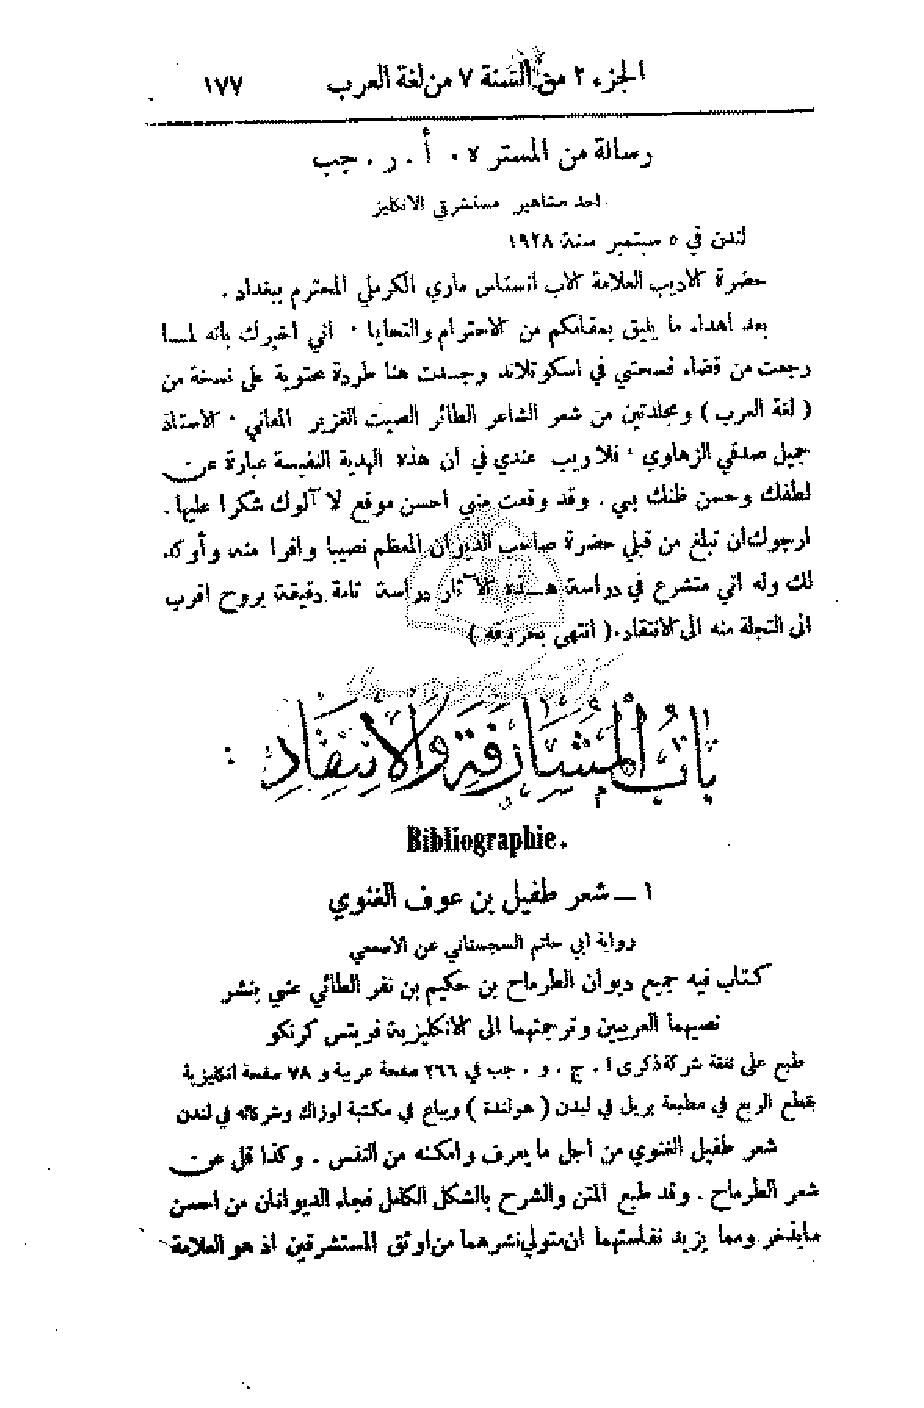 الجزء ٢ من السنة ٧ من لغة العرب ١٧٧
رسالة من المستر ه . أ . ر . جب
احد مشاهير مستشرقي الانكليز
لندن في ٥ سبتمبر سنة ١٩٢٨
حضرة الاديب العلامة الاب انستاس ماري الكرملي المحترم ببغداد .
بعد اهداء ما يليق بمقامكم من الاحترام والتحايا ، اني اخبرك بانه لمسا
رجعت من قضاء فسحتي في اسكوتلاند وجسدت هنا طردة محتوية على نسخة من
( لغة العرب ) ومجلدتين من شعر الشاعر الطائر الصيت الغزير المعاني ، الاستاذ
جميل صدقي الزهاوي ، فلا ريب عندي في ان هذه الهدية النفيسة عبارة عن
لطفك وحسن ظنك بي . وقد وقعت مني احسن موقع لا آلوك شكرا عليها .
ارجوك ان تبلغ من قبلي حضرة صاحب الديوان المعظم نصيبا وافرا منه وأوكد
لك وله اني متشرع في دراسة هـذه الآثار دراسة تامة دقيقة بروح اقرب
الى التجلة منه الى الانتقاد . ( انتهى بحروفه )
باب المشارفة والانتقاد :
Bibliographie.
١ ــ شعر طفيل بن عوف الغنوي
رواية ابي حاتم السجستاني عن الاصمعي
كتاب فيه جميع ديوان الطرماح بن حكيم بن نفر الطائي عني بنشر
نصيهما العربيين وترجمتهما الى الانكليزية فريتس كرنكو
طبع على نفقة شركة ذكرى ا . ج . و . جب في ٢٦٦ صفحة عربية و ٧٨ صفحة انكليزية
بقطع الربع في مطبعة بريل في ليدن ( هولندة ) ويباع في مكتبة لوزاك وشركائه في لندن
شعر طفيل الغنوي من اجل ما يعرف وامكنه من النفس . وكذا قل عن
شعر الطرماح . وقد طبع المتن والشرح بالشكل الكامل فجاء الديوانان من احسن
ما يذخر ومما يزيد نفاستهما ان متولي نشرهما من اوثق المستشرقين اذ هو العلامة